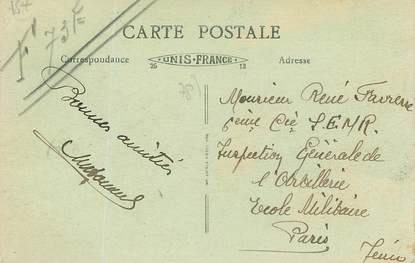 154
73F
CARTE POSTALE
Correspondance
UNIS-FRANCE
Adresse
26
13
Bonnes amitiés
Monsieur René
6ème Cie S.E.M.R.
Inspection Générale de
l'Artillerie
Ecole Militaire
Paris